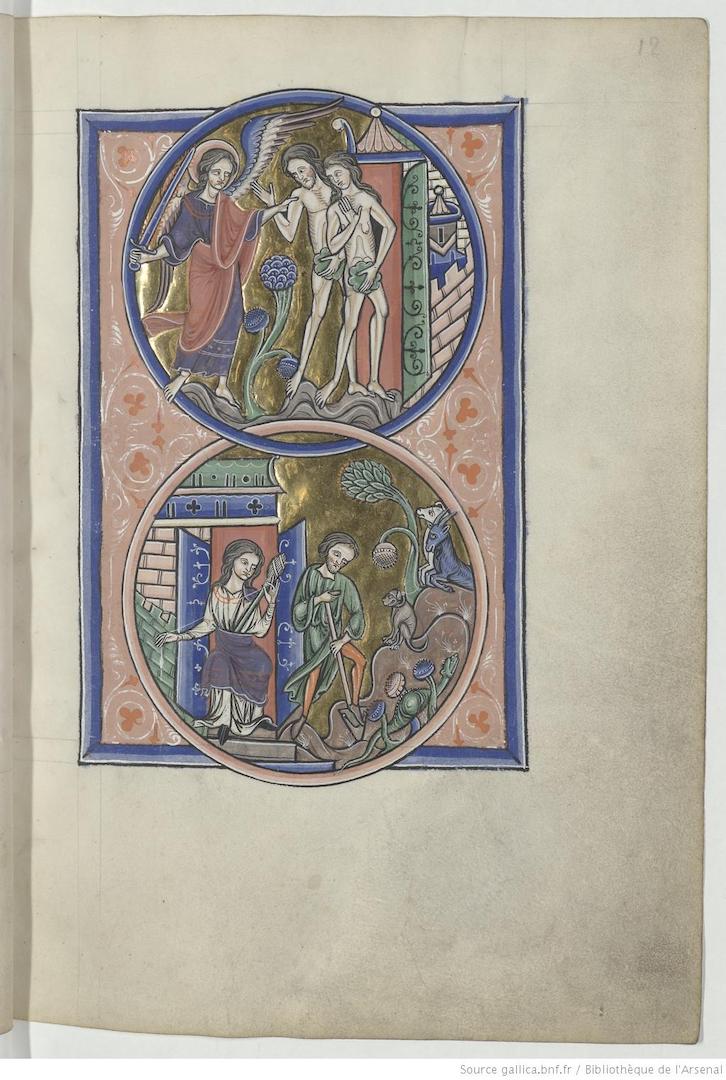 12
Source gallica.bnf.fr / Bibliothèque de l'Arsenal